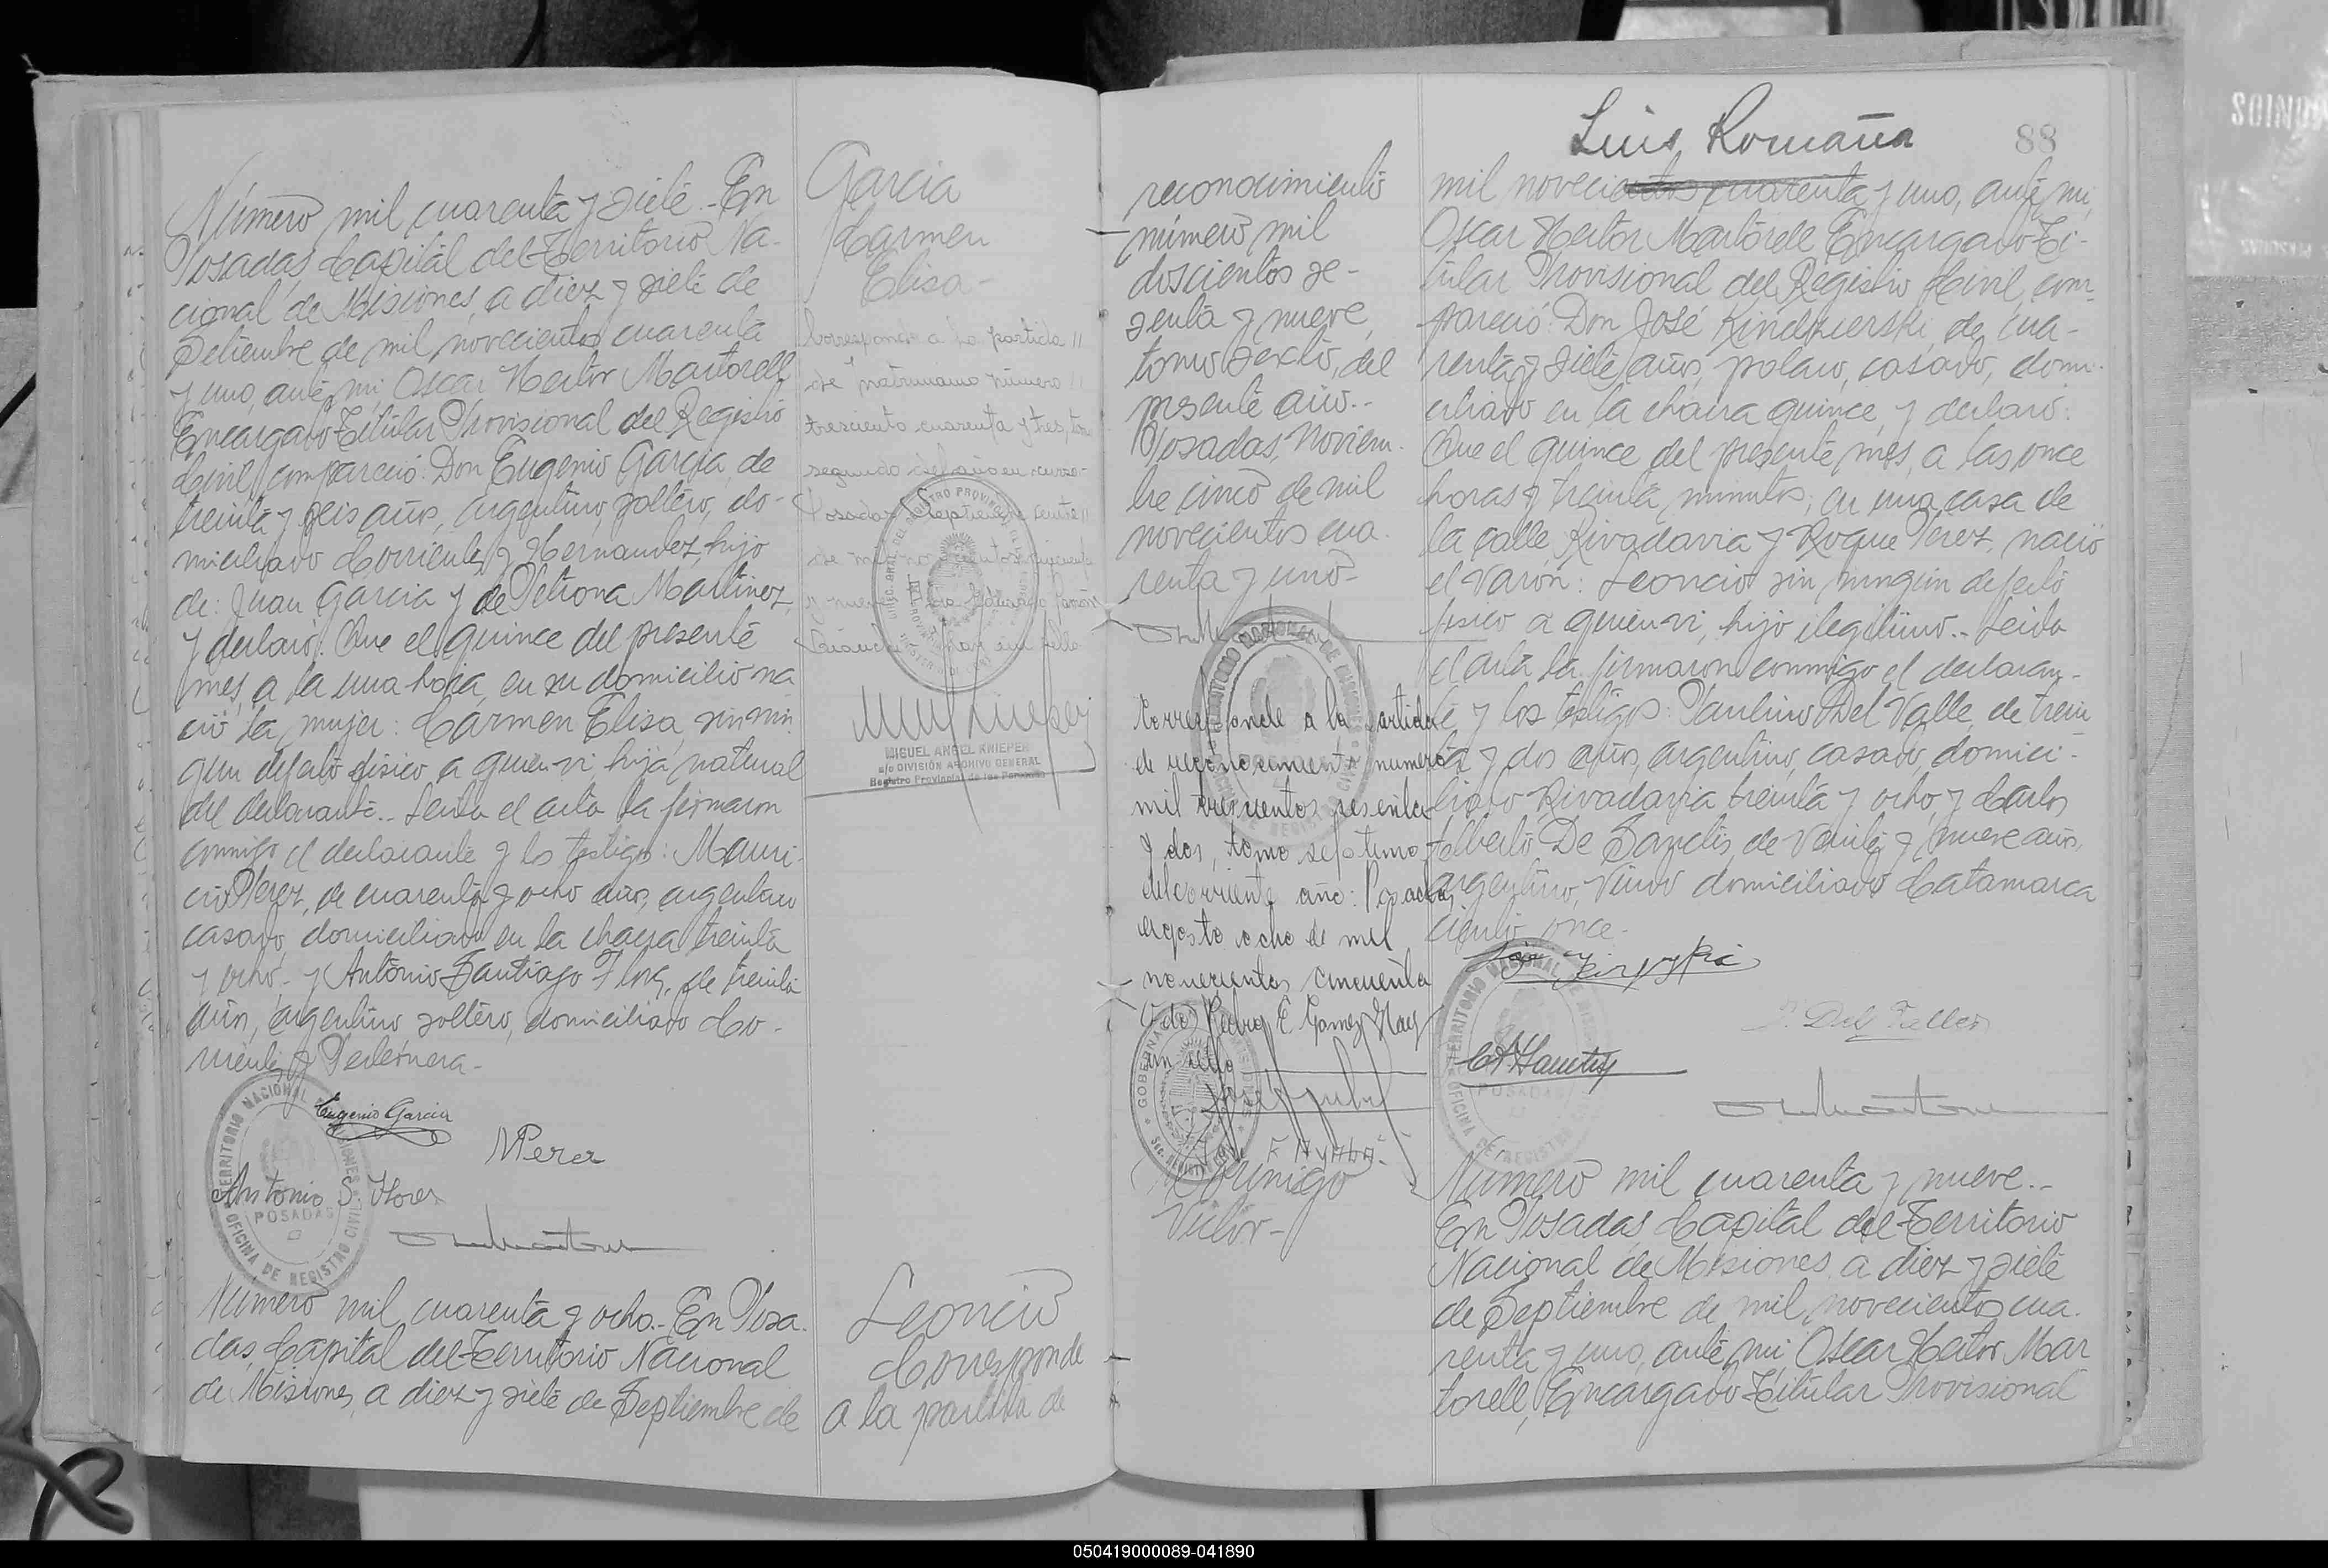 Número mil cuarenta y siete.- En
Posadas, Capital del Territorio Na-
cional de Misiones, a diez y siete de
Setiembre de mil novecientos cuarenta
y uno, ante mi, Oscar Hector Martorell
Encargado Titular Provisional del Registro
Civil, compareció: Don Eugenio Garcia, de
treinta y seis años, argentino, soltero, do-
miciliado Corrientes y Hernandez, hijo
de: Juan Garcia y de Petrona Martinez,
y declaró: Que el quince del presente
mes, a la una hora, en su domicilio na-
ció la mujer: Carmen Elisa, sin nin-
gun defecto fisico, a quien vi, hija natural
del declarante.- Leida el acta la firmaron
conmigo el declarante y los testigos: Mauri-
cio Perez, de cuarenta y ocho años, argentino
casado, domiciliado en la chacra treinta
y ocho.- y Antonio Santiago Flores, de treinta
años, argentino, soltero, domiciliado Co-
rrientes y Pedernera.-
Eugenio Garcia
M Perez
Antonio S. Flores
TERRITORIO NACIONAL DE MISIONES
POSADAS
OFICINA DE REGISTRO CIVIL
Número mil cuarenta y ocho.- En Posa-
das, Capital del Territorio Nacional
de Misiones, a diez y siete de Septiembre de
Garcia
Carmen
Elisa-
Corresponde a la partida //
de matrimonio número //
tresciento cuarenta y tres, tomo
segundo del año en curso-
Posadas, Septiembre veinte //
de mil novecientos cincuenta
y nueve
MIGUEL ANGEL KNIEPER
a/c DIVISIÓN ARCHIVO GENERAL
Registro Provincial de las Personas
Leoncio
Corresponde
a la partida de
reconocimiento
número mil
doscientos se-
senta y nueve,
tomo sexto, del
presente año.-
Posadas, Noviem-
bre cinco de mil
novecientos cua-
renta y uno-
Corresponde a la partida
de reconocimiento numero
mil trescientos sesenta
y dos, tomo septimo
del corriente año: Posadas,
agosto ocho de mil
novecientos cincuenta
Pedro E. Gomez
Victor-
Luis Romaña
88
mil novecientos cuarenta y uno, ante mi,
Oscar Hector Martorell Encargado Ti-
tular Provisional del Registro Civil, com-
pareció: Don José Kindzierski, de cua-
renta y siete años, polaco, casado, domi-
ciliado en la chacra quince, y declaró:
Que el quince del presente mes, a las once
horas y treinta minutos, en una casa de
la calle Rivadavia y Roque Perez, nació
el varón: Leoncio sin ningún defecto
fisico a quien vi, hijo ilegitimo.- Leida
el acta la firmaron conmigo el declaran-
te y los testigos: Paulino Del Valle, de trein-
ta y dos años, argentino, casado, domici-
liado Rivadavia treinta y ocho, y Carlos
Alberto De Sanctis, de veinte y nueve años,
argentino, viudo domiciliado Catamarca
ciento once-
P. Del Valle
Número mil cuarenta y nueve.-
En Posadas, Capital del Territorio
Nacional de Misiones, a diez y siete
de Septiembre de mil novecientos cua-
renta y uno, ante mi, Oscar Hector Mar-
torell, Encargado Titular Provisional
050419000089-041890